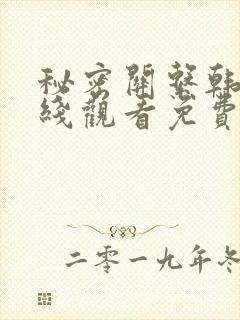 秘密開整韩
綫觀看免費
二零一九年冬